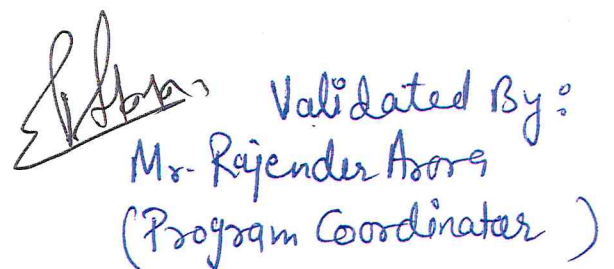 Validated By:
Mr. Rajender Arora
(Program Coordinator )